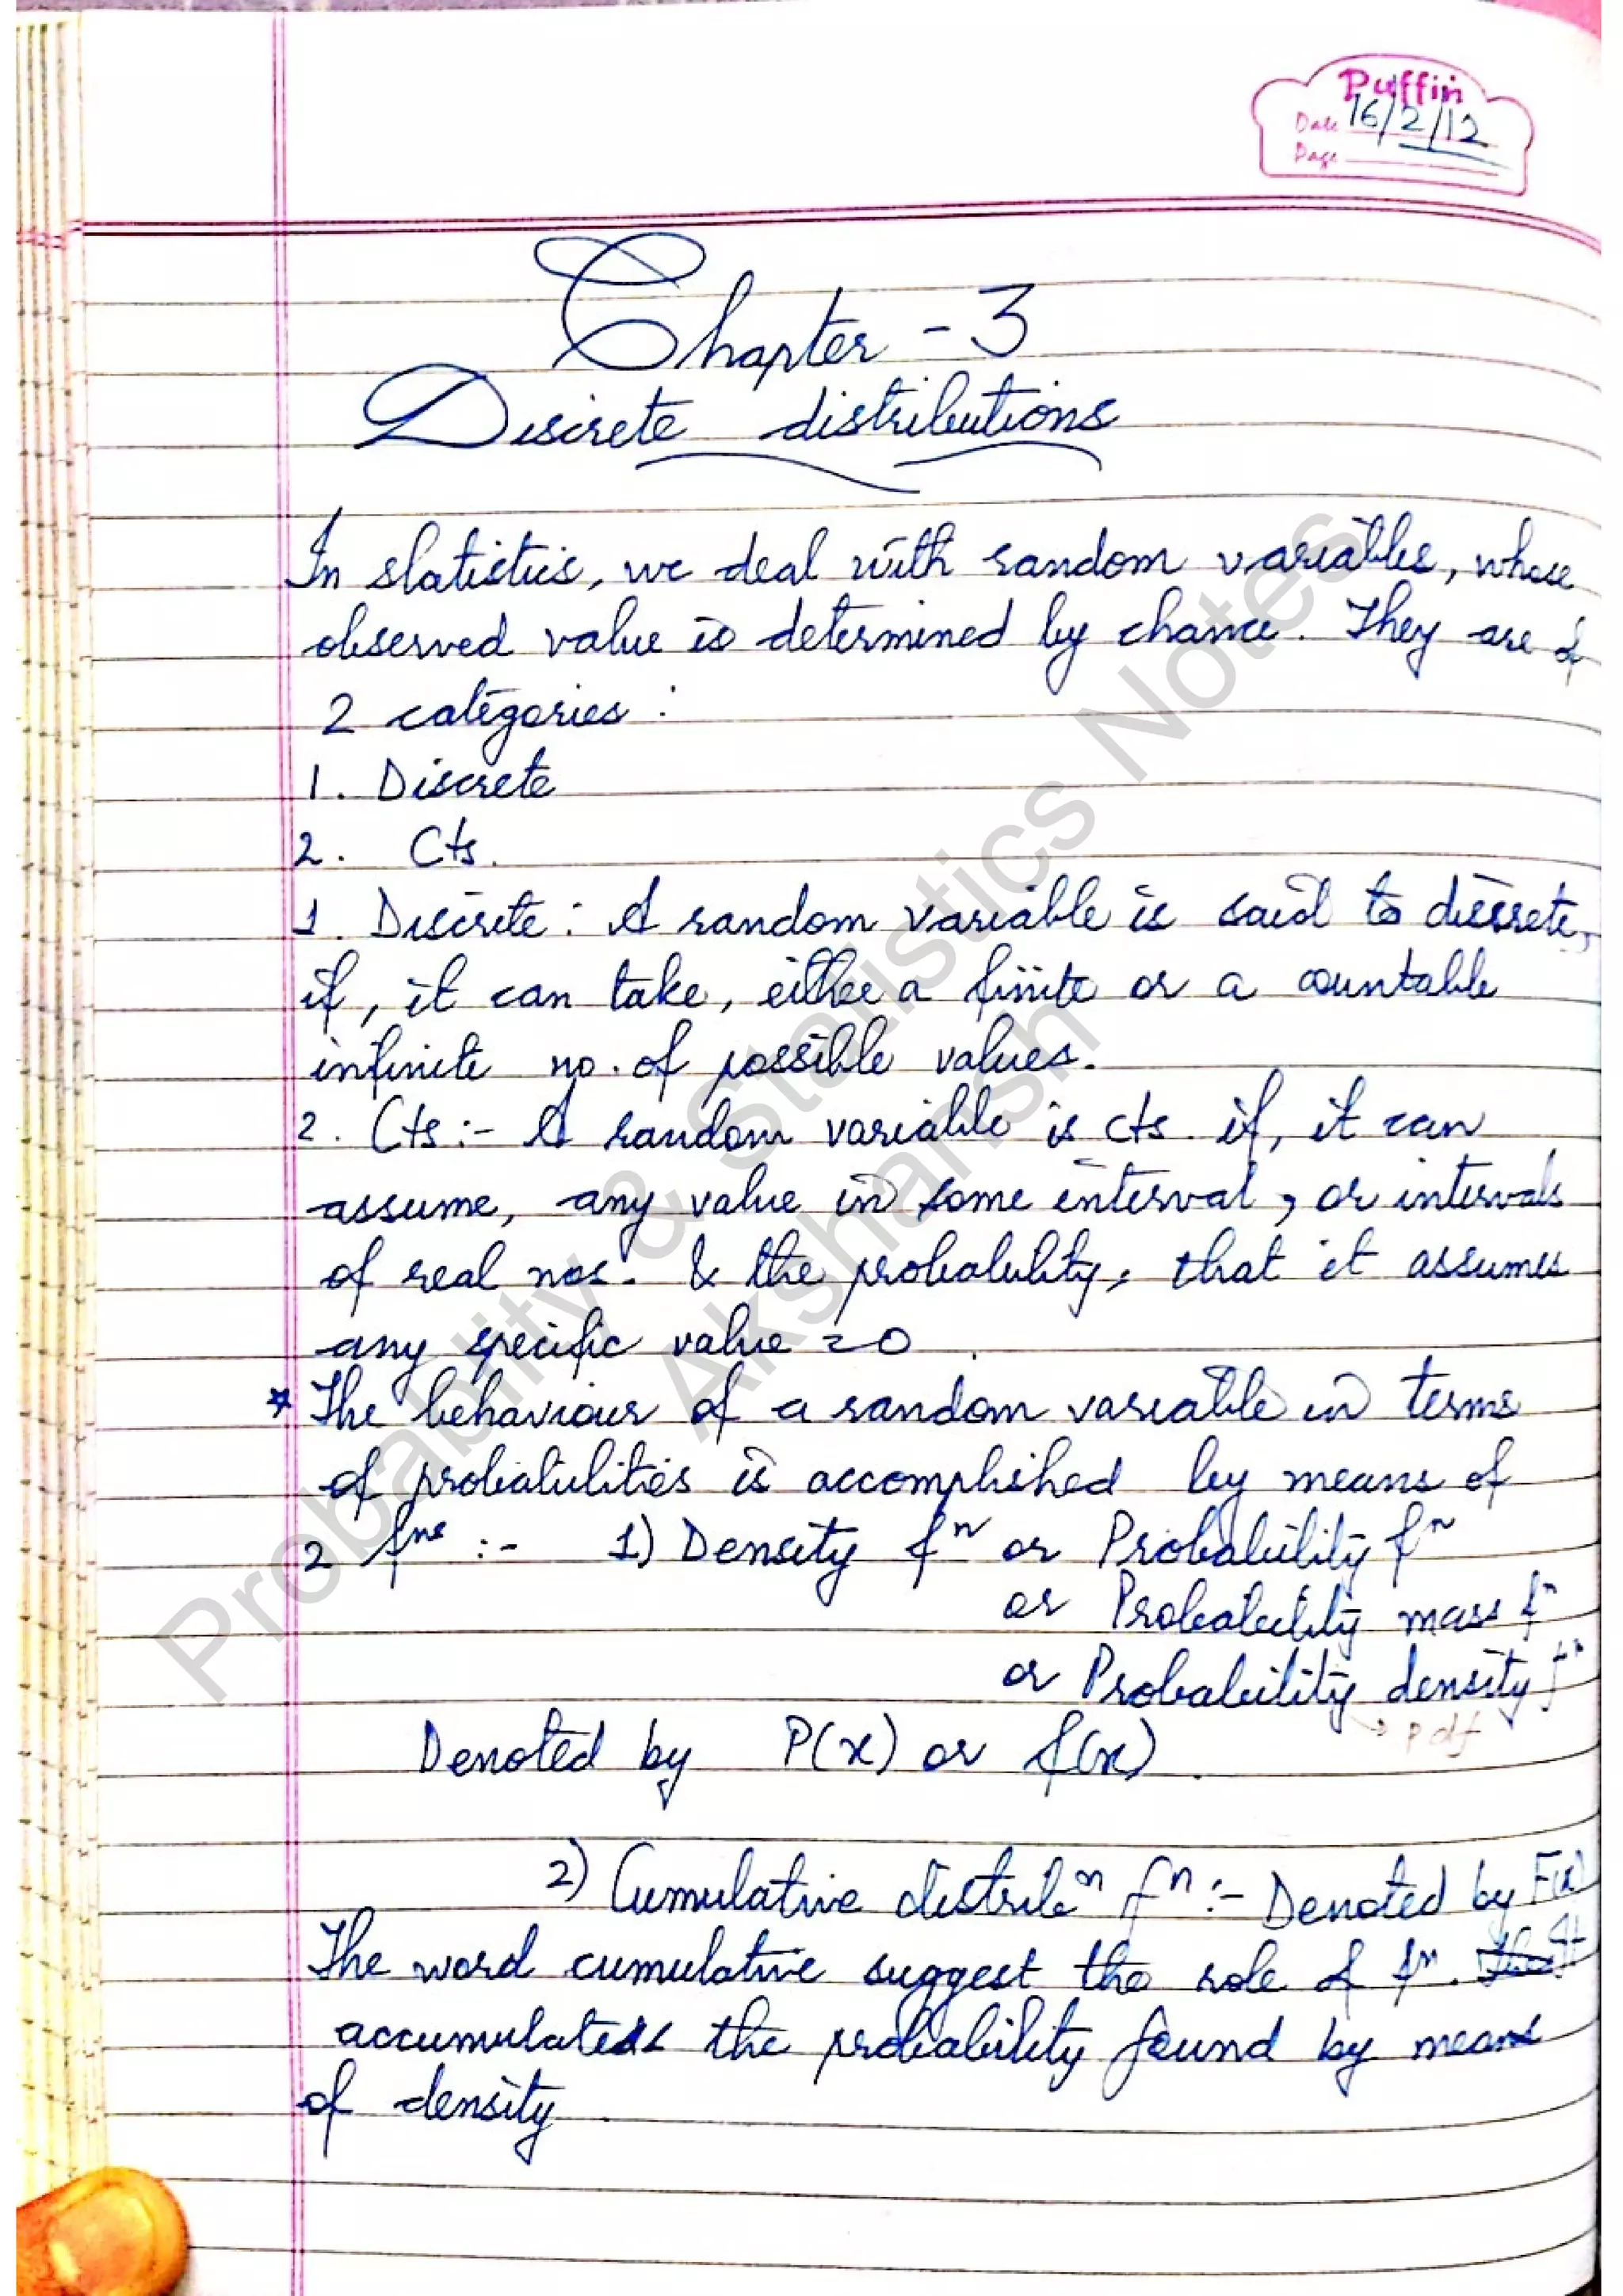 Puffin
Date 16/2/12
Page
Chapter - 3
Discrete distributions
In statistics, we deal with random variables, whose
observed value is determined by chance. They are of
2 categories :
1. Discrete
2. Cts.
1. Discrete : A random variable is said to discrete,
if, it can take, either a finite or a countable
infinite no. of possible values.
2. Cts :- A random variable is cts. if, it can
assume, any value in some interval, or intervals
of real nos. & the probability, that it assumes
any specific value = 0.
* The behaviour of a random variable in terms
of probabilities is accomplished by means of
2 fⁿˢ :- 1) Density fⁿ or Probability fⁿ
or Probability mass fⁿ
or Probability density fⁿ
→ pdf
Denoted by P(x) or f(x).
2) Cumulative distribⁿ fⁿ :- Denoted by F(x)
The word cumulative suggest the role of fⁿ. It
accumulates the probability found by means
of density.
Probability & Statistics Notes
Akshansh